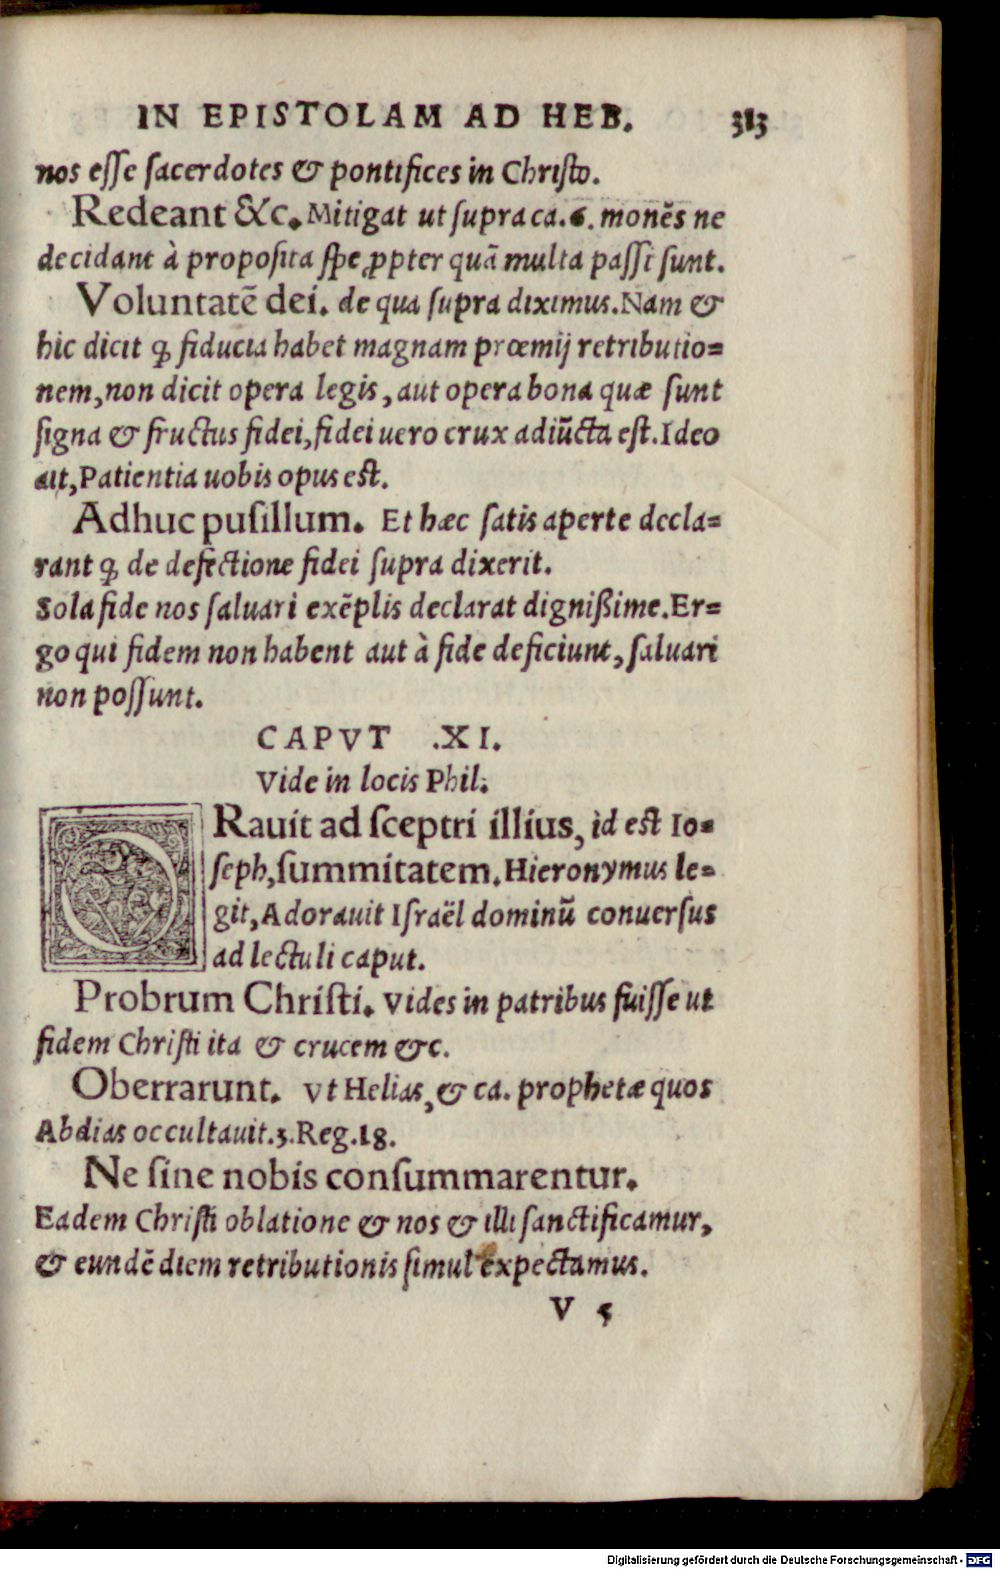 IN EPISTOLAM AD HEB. 313
nos esse sacerdotes & pontifices in Christo.
Redeant &c. Mitigat ut supra ca. 6. monẽs ne
decidant à proposita spe, ꝓpter quã multa passi sunt.
Voluntatẽ dei. de qua supra diximus. Nam &
hic dicit ꝙ fiducia habet magnam præmij retributio=
nem, non dicit opera legis, aut opera bona quæ sunt
signa & fructus fidei, fidei uero crux adiũcta est. Ideo
ait, Patientia uobis opus est.
Adhuc pusillum. Et hæc satis aperte decla=
rant ꝙ de defectione fidei supra dixerit.
Sola fide nos saluari exẽplis declarat dignißime. Er=
go qui fidem non habent aut à fide deficiunt, saluari
non possunt.
CAPVT .XI.
Vide in locis Phil.
ORauit ad sceptri illius, id est Io=
seph, summitatem. Hieronymus le=
git, Adorauit Israël dominũ conuersus
ad lectuli caput.
Probrum Christi. Vides in patribus fuisse ut
fidem Christi ita & crucem &c.
Oberrarunt. Vt Helias, & ca. prophetæ quos
Abdias occultauit. 3. Reg. 18.
Ne sine nobis consummarentur.
Eadem Christi oblatione & nos & illi sanctificamur,
& eundẽ diem retributionis simul expectamus.
V 5
Digitalisierung gefördert durch die Deutsche Forschungsgemeinschaft - DFG